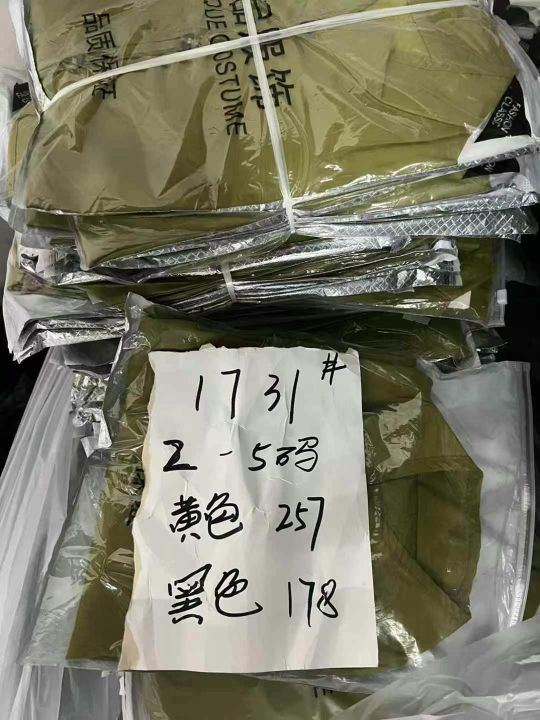 品质
服饰
COSTUME
FASHION
CLASSIC
1731#
2-5码
黄色 257
黑色 178